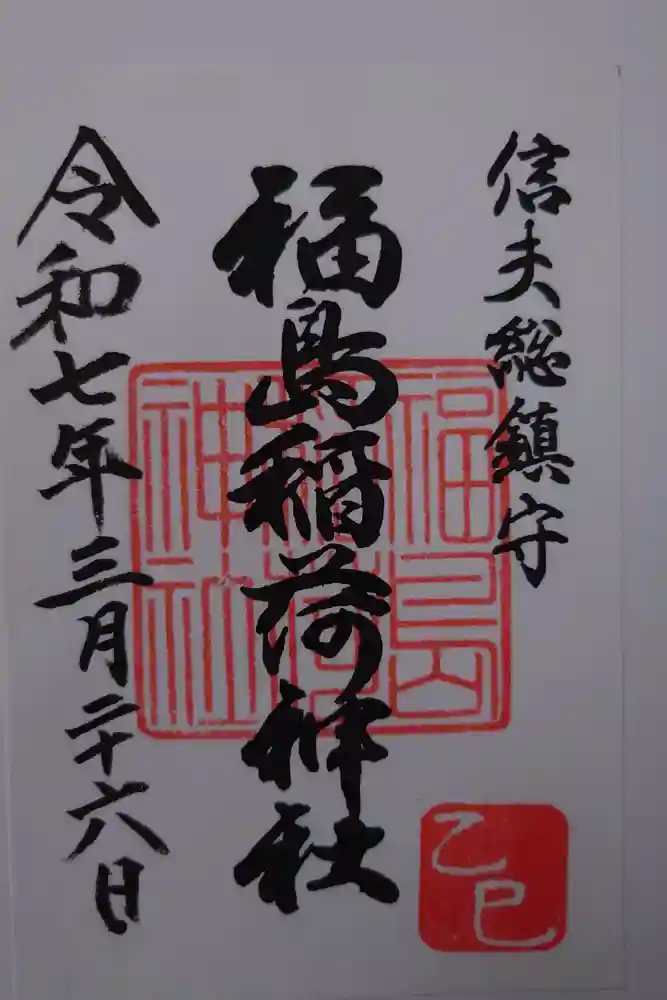 信夫総鎮守
福島稲荷神社
福島稲荷神社
令和七年三月二十六日
乙巳